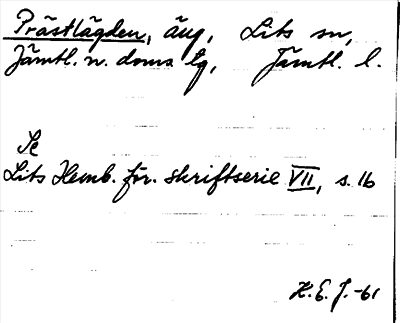 Prästlägden, äng, Lits sn,
Jämtl. n. doms tg, Jämtl. l.
Se
Lits Hemb. för. skriftserie VII, s. 16
H. E. J. -61